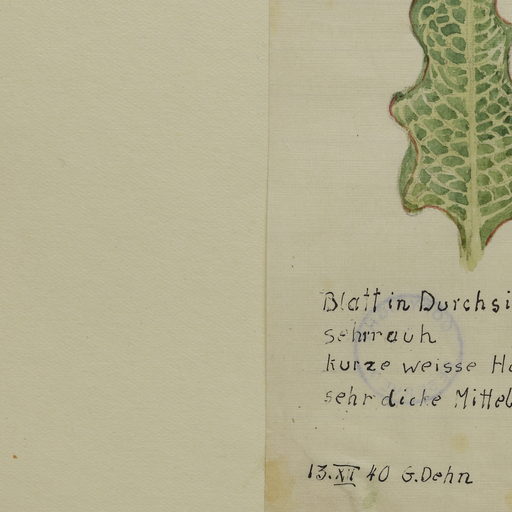 Blatt in Durchsi
sehrrauh
kurze weisse Ha
sehr dicke Mittel
13.XI 40 G.Dehn